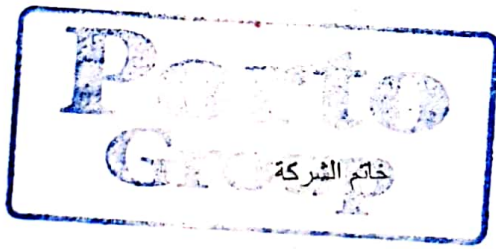 Porto
Group
خاتم الشركة